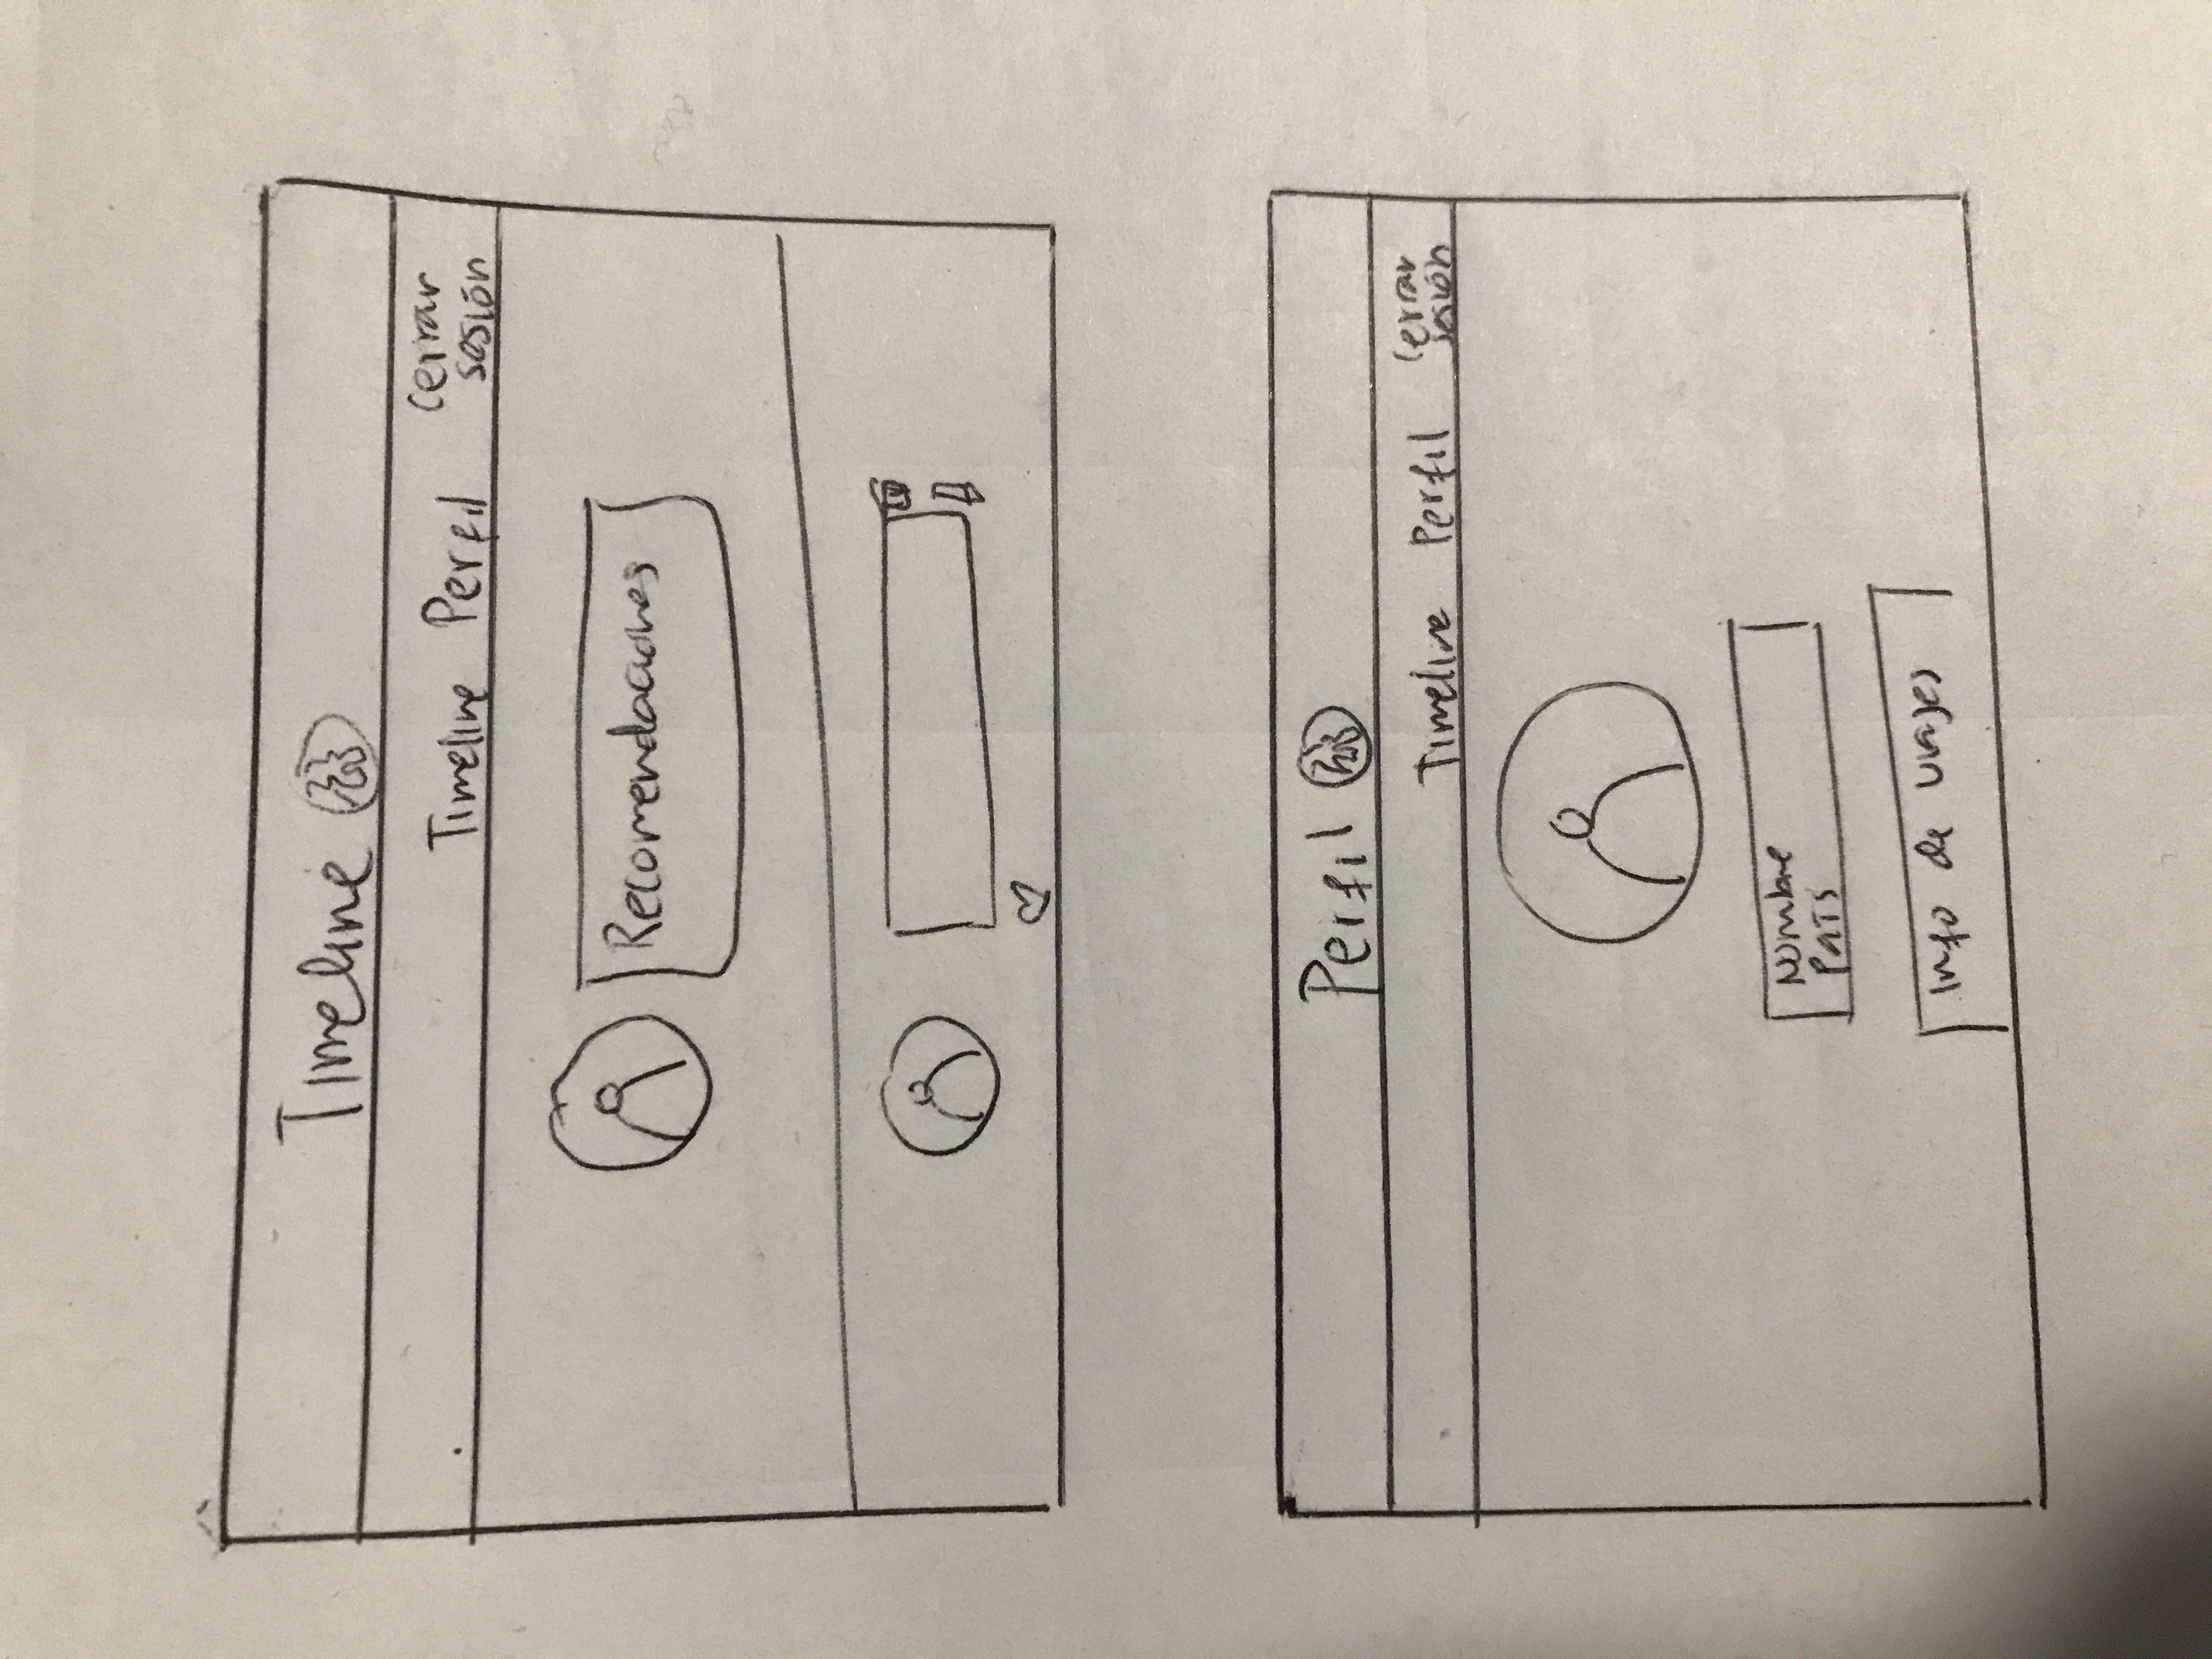 Timeline
Timeline Perfil Cerrar
sesión
Recomendaciones
Perfil
Timeline Perfil Cerrar
sesión
Nombre
País
Info de viajes